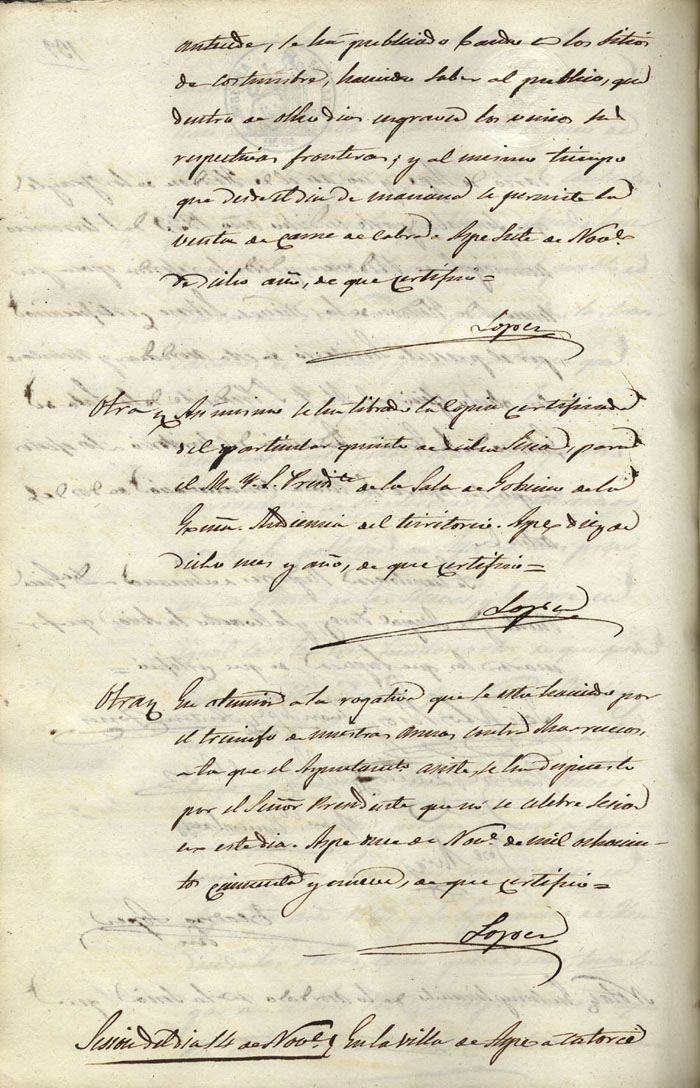 antecede, se ha publicado bando en los sitios
de costumbre, haciendo saber al publico, que
dentro de ocho dias engraven los vecinos sus
respectivas fronteras; y al mismo tiempo
que desde el dia de mañana se permite la
venta de carne de cabra. Aspe siete de Novᵉ
de dicho año, de que certifico =
Lopez
Otra Asimismo se ha librado la copia certificada
del particular quinto de dicha sesion, para
el M. Y. S. Presidᵗᵉ de la Sala de Gobierno de la
Exmã. Audiencia del territorio. Aspe diez de
dicho mes y año, de que certifico =
Lopez
Otra En atencion a la rogativa que se esta haciendo por
el triunfo de nuestras armas contra Marruecos,
a la que el Ayuntamᵗᵒ asiste, se ha dispuesto
por el Señor Presidente que no se celebre sesion
en este dia. Aspe once de Novᵉ de mil ochocien-
tos cincuenta y nueve, de que certifico =
Lopez
Sesion del dia 14 de Novᵉ En la villa de Aspe a catorce